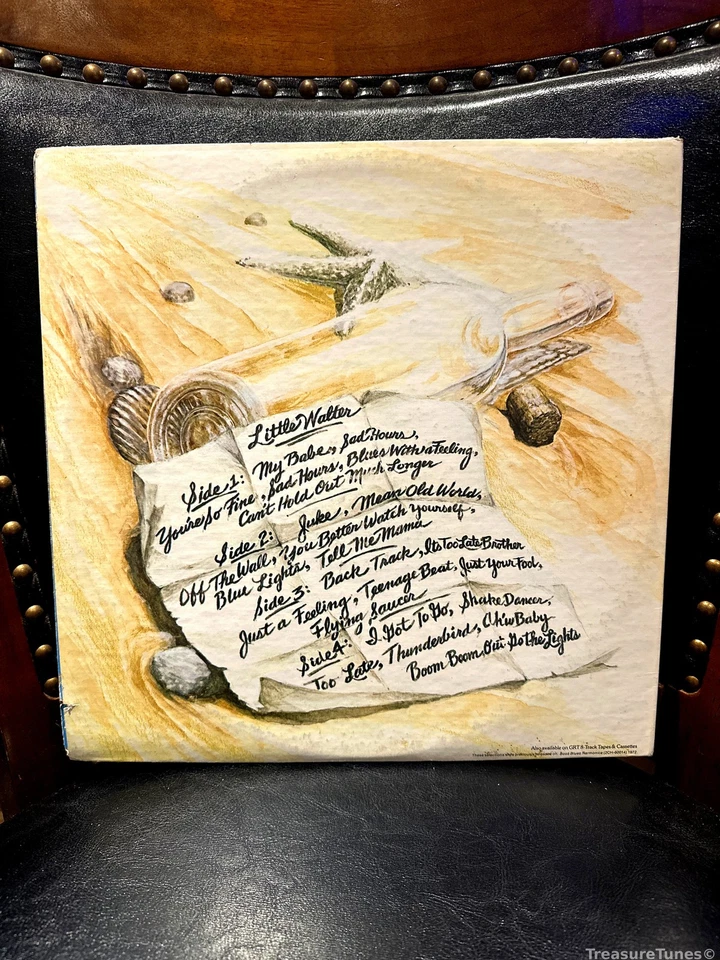 Little Walter
Side 1: My Babe, Sad Hours,
You're So Fine, Sad Hours, Blues With a Feeling,
Can't Hold Out Much Longer
Side 2: Juke, Mean Old World,
Off The Wall, You Better Watch Yourself,
Blue Lights, Tell Me Mama
Side 3: Back Track, Its Too Late Brother
Just a Feeling, Teenage Beat, Just Your Fool,
Flying Saucer
Side 4: I Got To Go, Shake Dancer,
Too Late, Thunderbird, Ah'w Baby
Boom Boom Out Go the Lights
Also available on GRT 8-Track Tapes & Cassettes
These selections were previously released on Boss Blues Harmonica (2CH-60014) 1972
TreasureTunes©